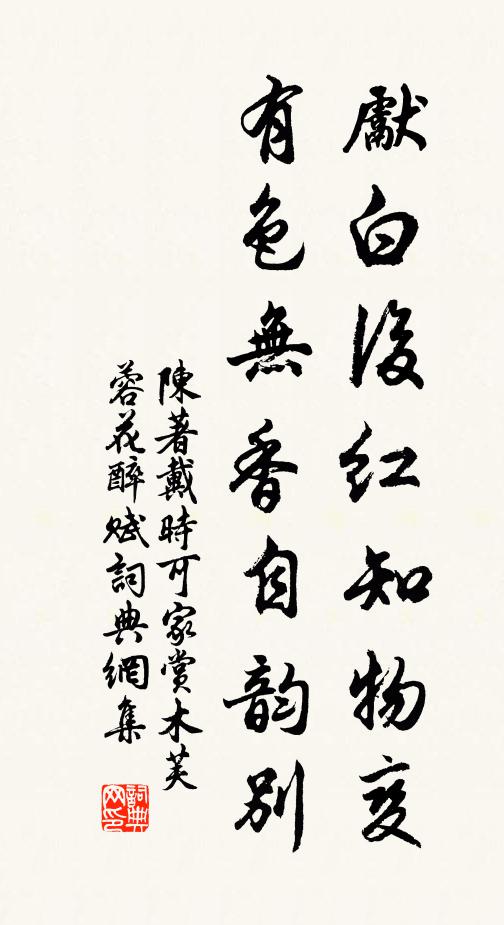 獻白後紅知物变
有色無香自韵别
陳著戴時可家賞木芙
蓉花醉賦詞典網集
詞典网印